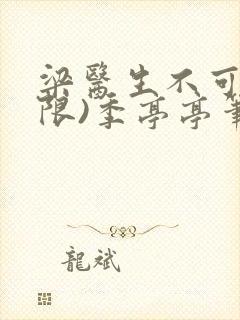 梁醫生不可
限)季亭亭筆
龍斌